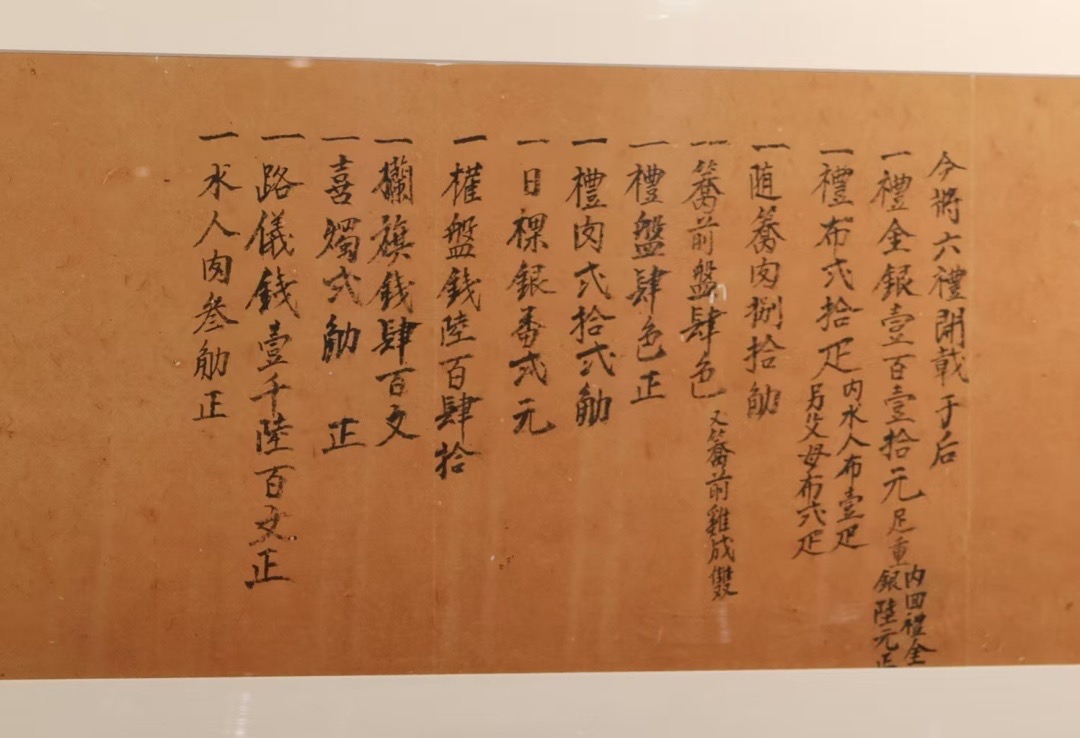 今將六禮開載于后
一禮金銀壹百壹拾元足重內回禮金銀陸元正
一禮布弍拾疋內水人布壹疋另父母布六疋
一随籌肉捌拾觔
一籌前盤肆色又籌前雞成雙
一禮盤肆色正
一禮肉弍拾弍觔
一日裸銀番弍元
一權盤錢陸百肆拾
一攔旗錢肆百文
一喜燭弍觔正
一路儀錢壹千陸百文正
一水人肉叄觔正